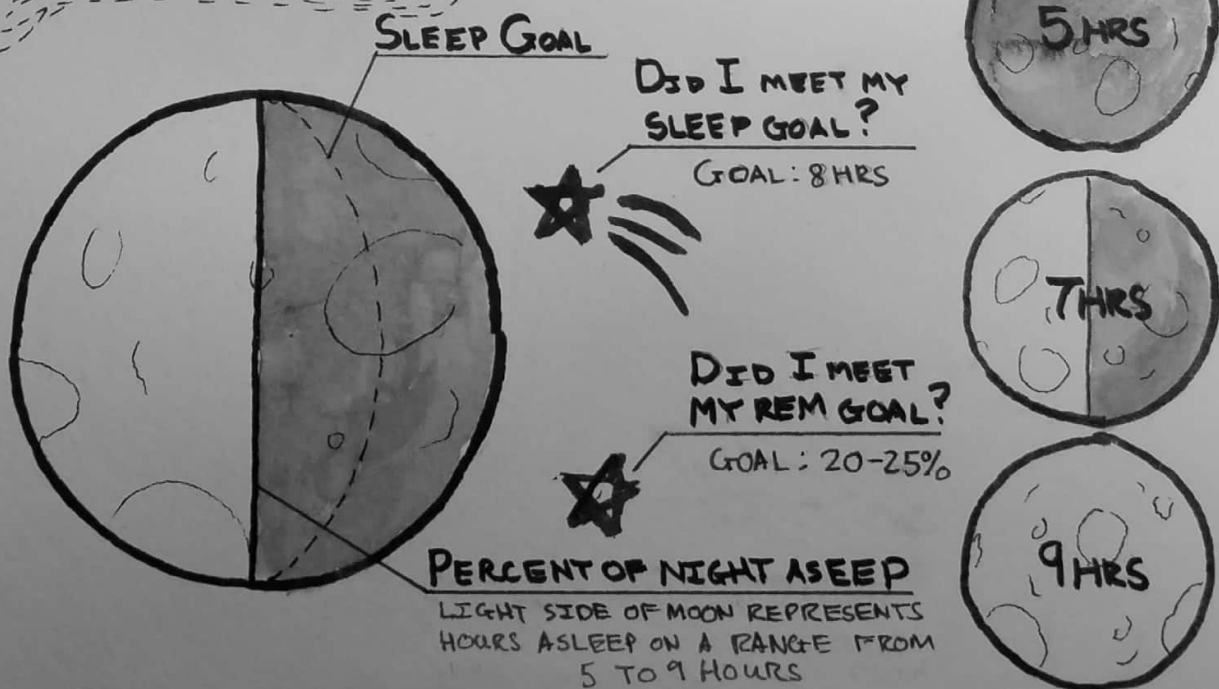 SLEEP GOAL
DID I MEET MY
SLEEP GOAL?
GOAL: 8HRS
DID I MEET
MY REM GOAL?
GOAL: 20-25%
PERCENT OF NIGHT ASEEP
LIGHT SIDE OF MOON REPRESENTS
HOURS ASLEEP ON A RANGE FROM
5 TO 9 HOURS
5 HRS
7HRS
9HRS